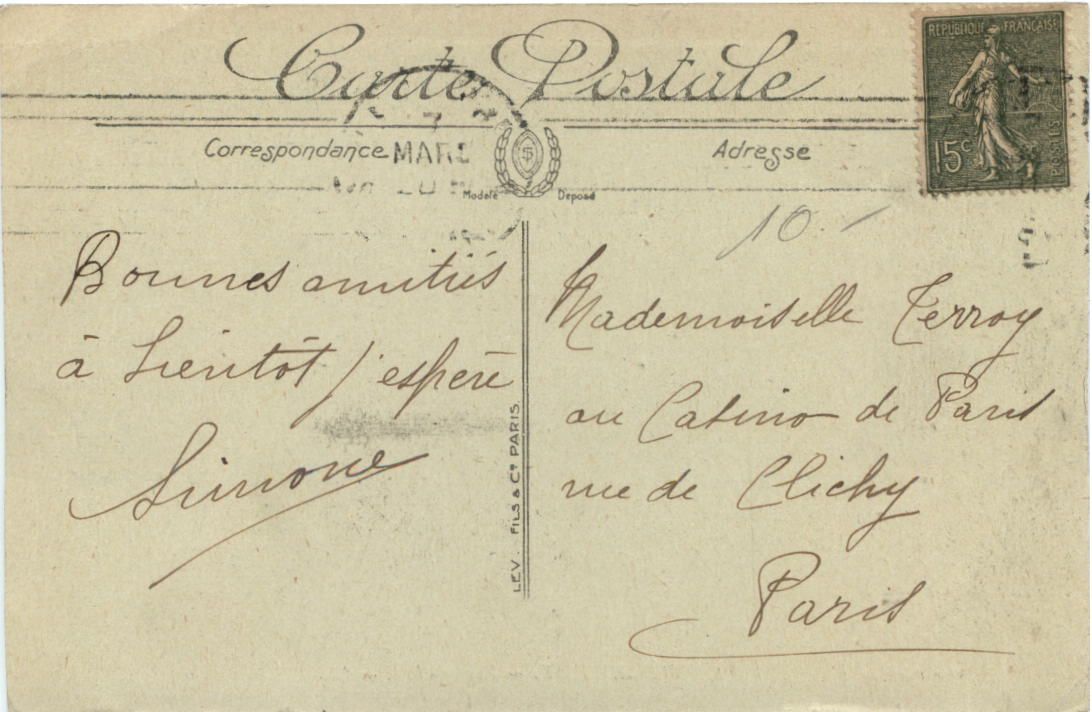 Carte Postale
RÉPUBLIQUE FRANÇAISE
15c
POSTES
Correspondance
MARS
Adresse
Modèle Déposé
10.-
Bonnes amitiés
à bientôt j'espère
Simone
Mademoiselle Terroy
au Casino de Paris
rue de Clichy
Paris
LEV. FILS & Cie PARIS.